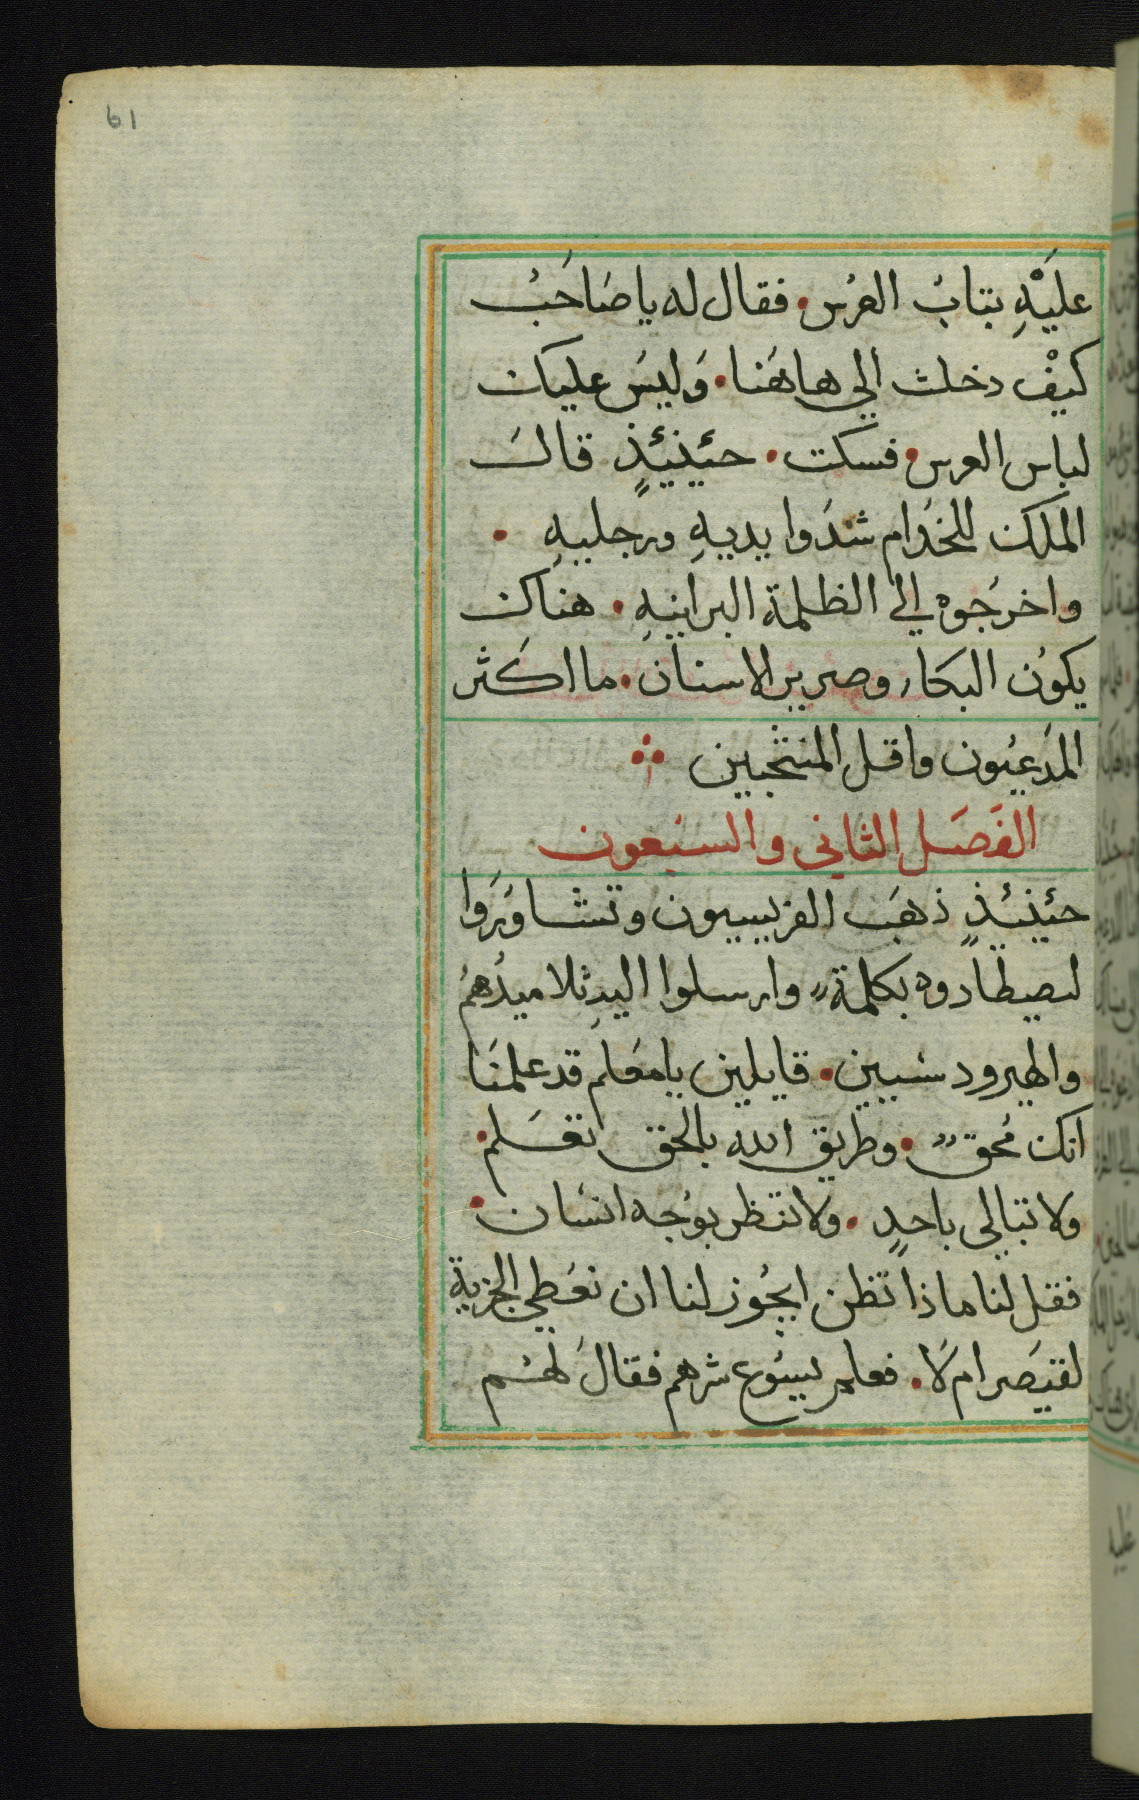 61
عليْهِ بتابُ العرُس. فقال له يا صَاحَبُ
كيْف دخلت الي هاهَنا. وَليسَ عليك
لباس العرس. فسكت. حئينيئذٍ قالَ
الملك للخدَام شدَوا يدىيهِ ورجليهِ.
واخرجُوه الي الظلمة البرانيهِ. هناك
يكوُن البكاء وصرير الاسنان. ما اكثر
المَدعيُون واقل المنتخبين
الفَصَل الثاني والسبَعون
حئينيئذٍ ذهبَ الفريسيون وتشاورَوا
ليصيطادوه بكلمة، وارسلوا اليهِ تلاميذُهمُ
والهيرودسيين. قايلين يا معَلم قد علمنَا
انك مُحق. وطريق الله بالحق تعَلم.
ولا تبالي باحدٍ. ولا تنظر بوُجه انسَان.
فقل لنا ماذا تظن ايجُوز لنا ان نعَطي الجزية
لقيصَر ام لَا. فعلم يسَوع شرهم فقالَ لهُم
عليه